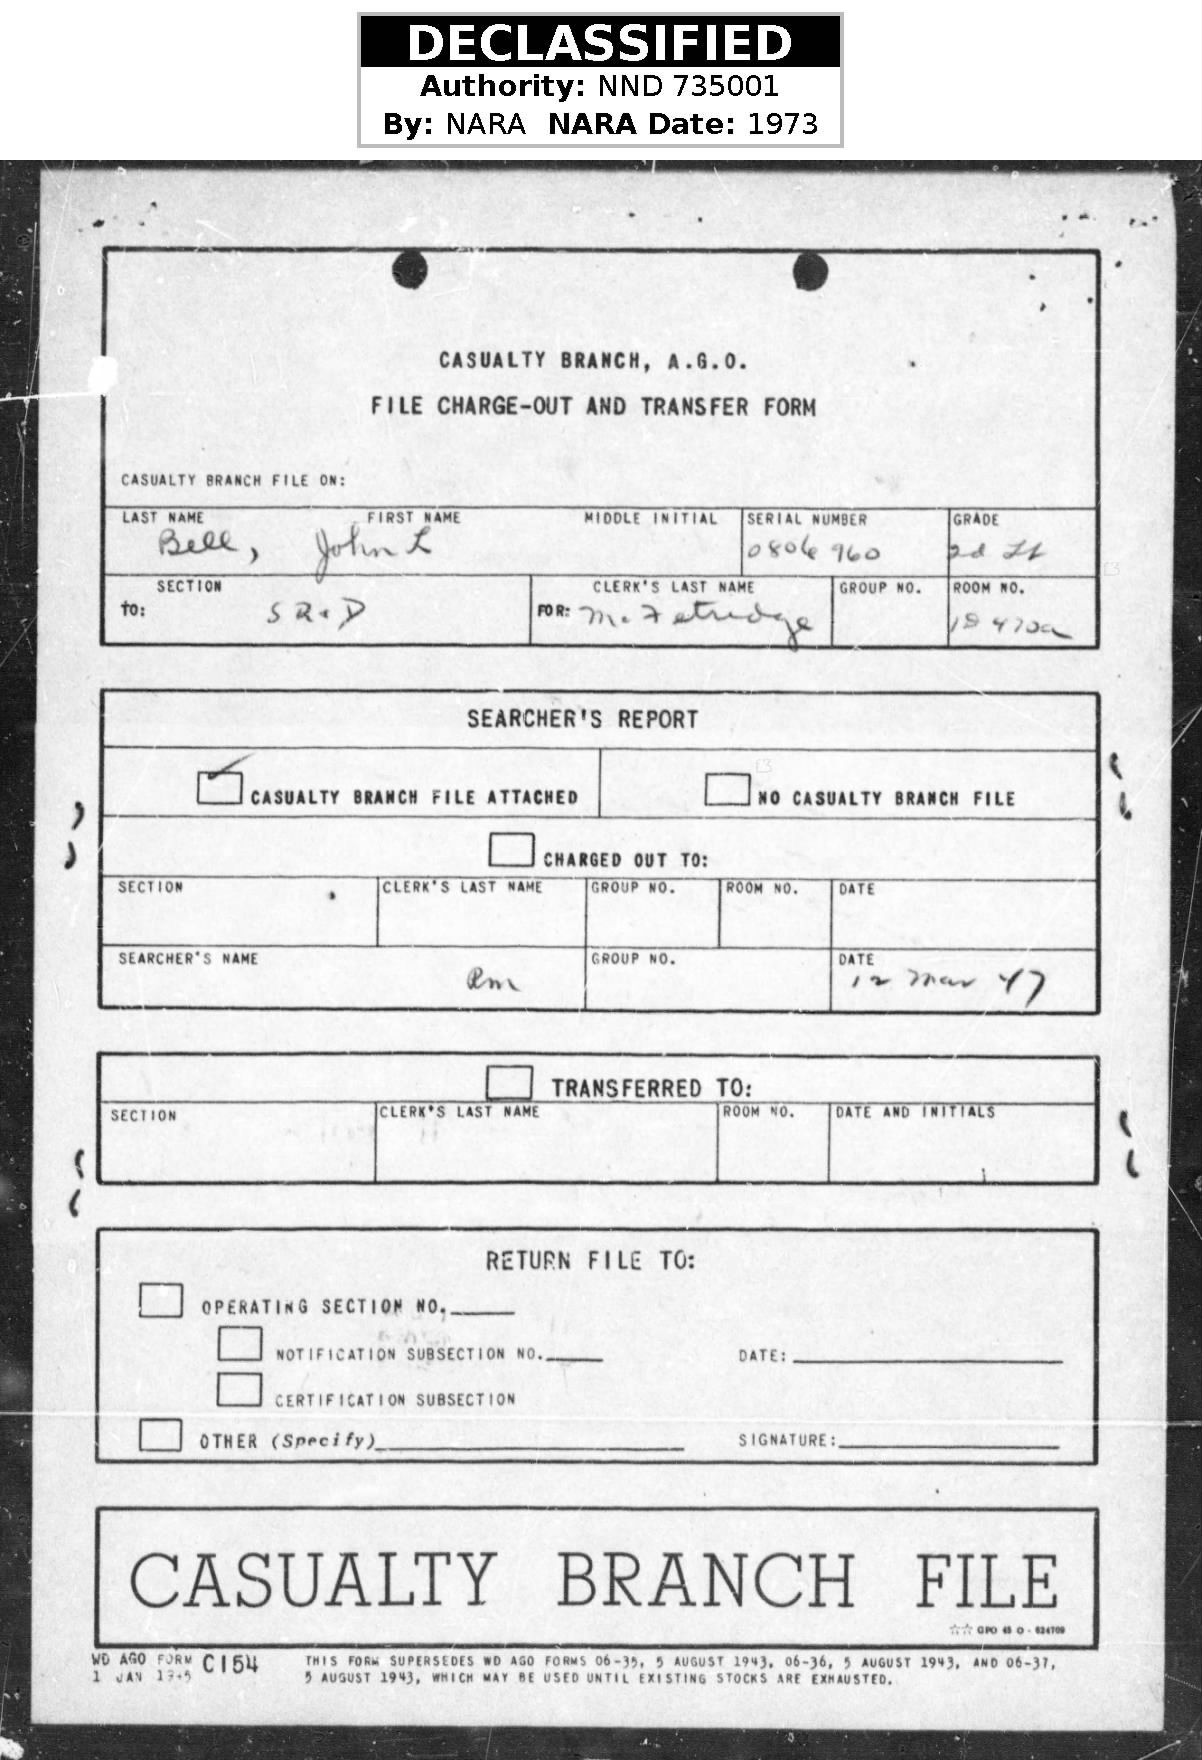 DECLASSIFIED
Authority: NND 735001
By: NARA NARA Date: 1973
CASUALTY BRANCH, A.G.O.
FILE CHARGE-OUT AND TRANSFER FORM
CASUALTY BRANCH FILE ON:
LAST NAME FIRST NAME MIDDLE INITIAL SERIAL NUMBER GRADE
Bell, John L 0806 960 2d Lt
SECTION CLERK'S LAST NAME GROUP NO. ROOM NO.
TO: S R & D FOR: McFetridge
SEARCHER'S REPORT
CASUALTY BRANCH FILE ATTACHED NO CASUALTY BRANCH FILE
CHARGED OUT TO:
SECTION CLERK'S LAST NAME GROUP NO. ROOM NO. DATE
SEARCHER'S NAME GROUP NO. DATE
Rm 12 Mar 47
TRANSFERRED TO:
SECTION CLERK'S LAST NAME ROOM NO. DATE AND INITIALS
RETURN FILE TO:
OPERATING SECTION NO.
NOTIFICATION SUBSECTION NO. DATE:
CERTIFICATION SUBSECTION
OTHER (Specify) SIGNATURE:
CASUALTY BRANCH FILE
GPO 45 O - 624709
WD AGO FORM C154 THIS FORM SUPERSEDES WD AGO FORMS 06-35, 5 AUGUST 1943, 06-36, 5 AUGUST 1943, AND 06-37,
1 JAN 1945 5 AUGUST 1943, WHICH MAY BE USED UNTIL EXISTING STOCKS ARE EXHAUSTED.